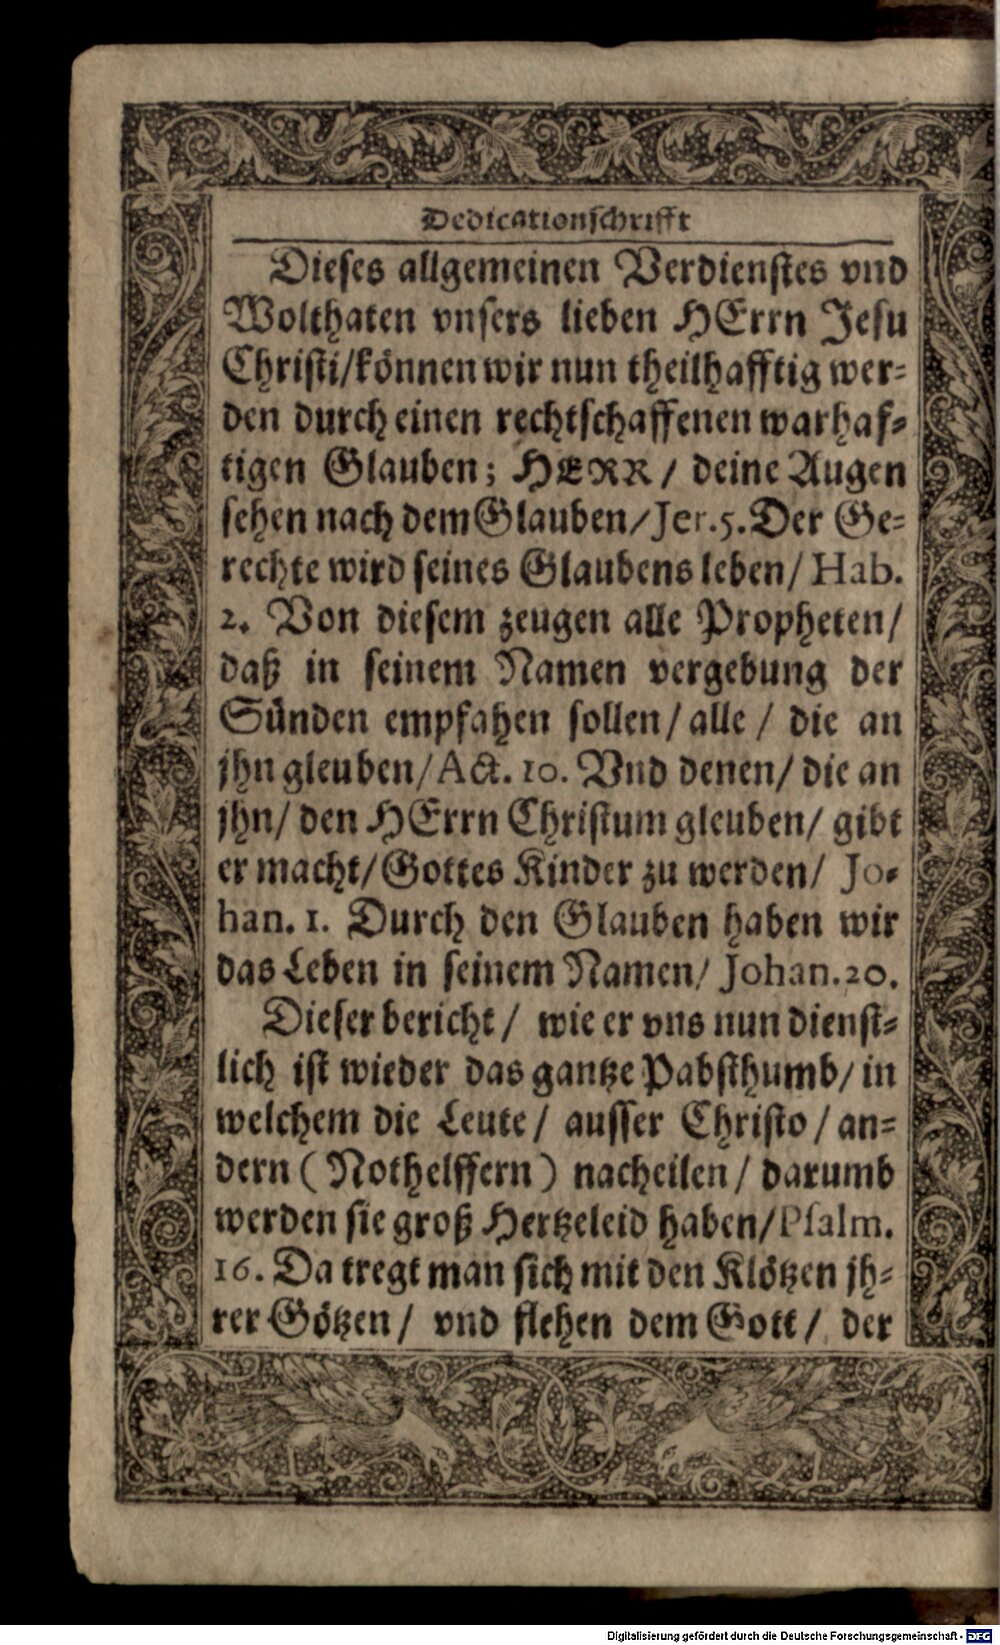 Dedicationschrifft
Dieses allgemeinen Verdienstes vnd
Wolthaten vnsers lieben HErrn Jesu
Christi/können wir nun theilhafftig wer-
den durch einen rechtschaffenen warhaf-
tigen Glauben; HERR / deine Augen
sehen nach dem Glauben/Jer.5. Der Ge-
rechte wird seines Glaubens leben/ Hab.
2. Von diesem zeugen alle Propheten/
daß in seinem Namen vergebung der
Sünden empfahen sollen/ alle / die an
jhn gleuben/Act. 10. Vnd denen/ die an
jhn/ den HErrn Christum gleuben/ gibt
er macht/Gottes Kinder zu werden/ Jo-
han. 1. Durch den Glauben haben wir
das Leben in seinem Namen/ Johan.20.
Dieser bericht / wie er vns nun dienst-
lich ist wieder das gantze Pabsthumb/ in
welchem die Leute / ausser Christo / an-
dern ( Nothelffern ) nacheilen / darumb
werden sie groß Hertzeleid haben/Psalm.
16. Da tregt man sich mit den Klötzen jh-
rer Götzen / vnd flehen dem Gott / der
Digitalisierung gefördert durch die Deutsche Forschungsgemeinschaft - DFG